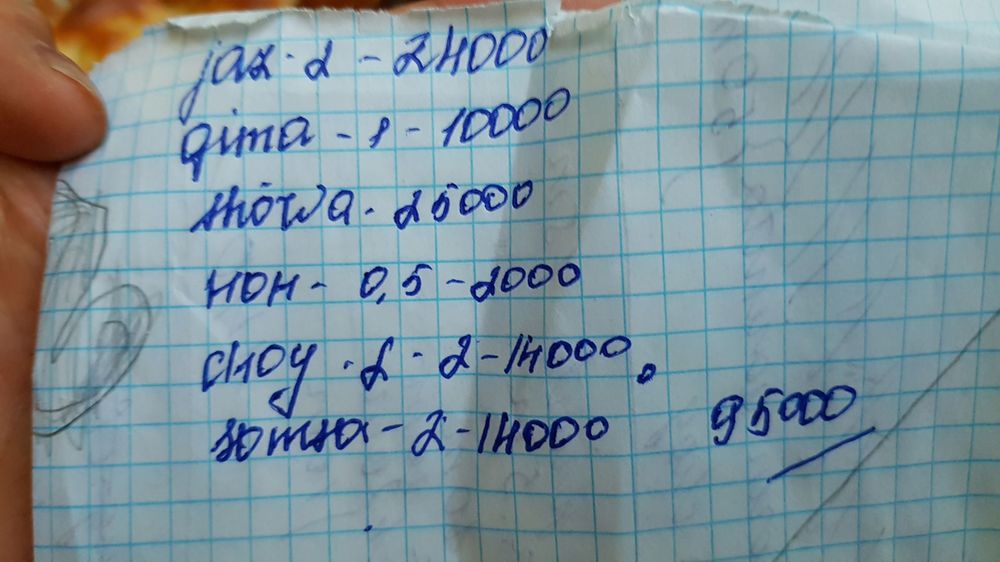 jaz. 2 - 24000
qima - 1 - 10000
shórva. 25000
нон - 0,5 - 2000
choy. L. 2 - 14000.
- 2 - 14000 95000